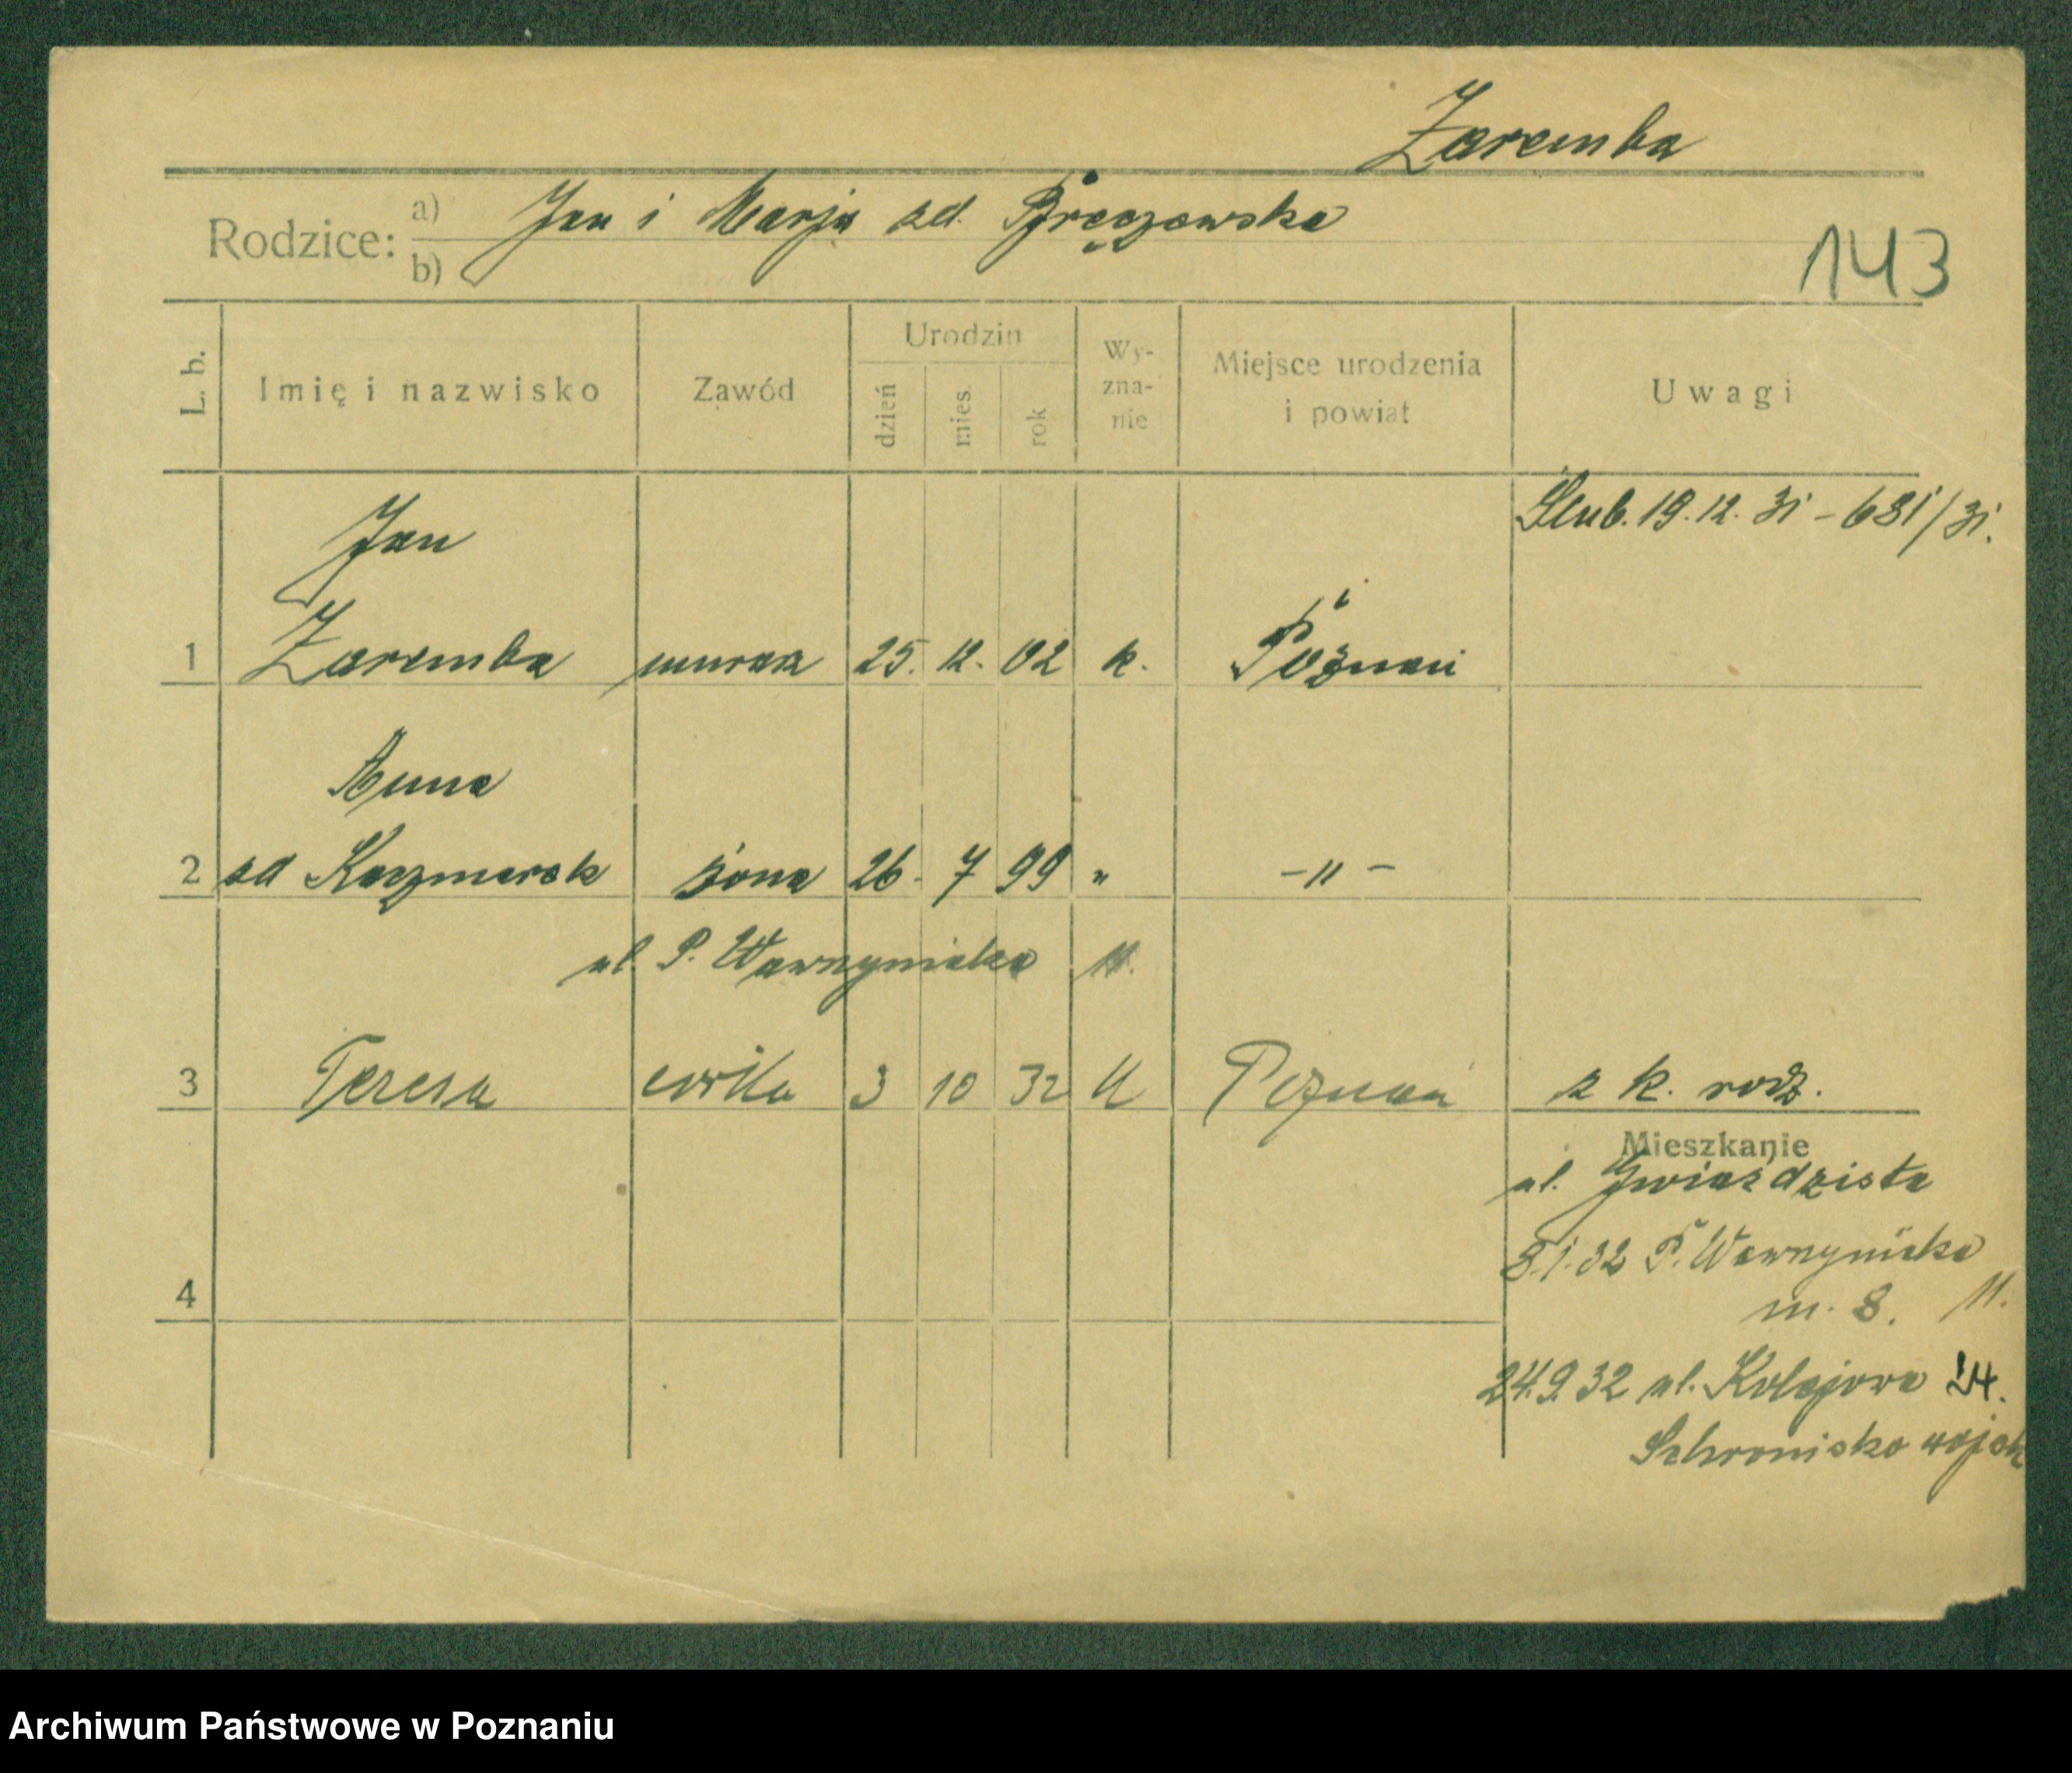 Zaremba
Rodzice: a) Jan i Marja zd.
b)
143
L. b.
Imię i nazwisko
Zawód
Urodzin
dzień
mies.
rok
Wy-
zna-
nie
Miejsce urodzenia
i powiat
Uwagi
Ślub. 19.12.31 - 681/31.
Jan
1 Zaremba murarz 25. 12. 02 k. Poznań
Anna
2 zd Kaczmarek żona 26. 7 99 " -"-
ul. P. Wawrzyniaka 11.
3 Teresa córka 3 10 32 Poznań z k. rodz.
Mieszkanie
ul. Gwiaździsta
8.1.32 P. Wawrzyniaka
4 m. 8. 11.
24.9.32 ul. Kolejowa 24.
Schronisko wojsk
Archiwum Państwowe w Poznaniu